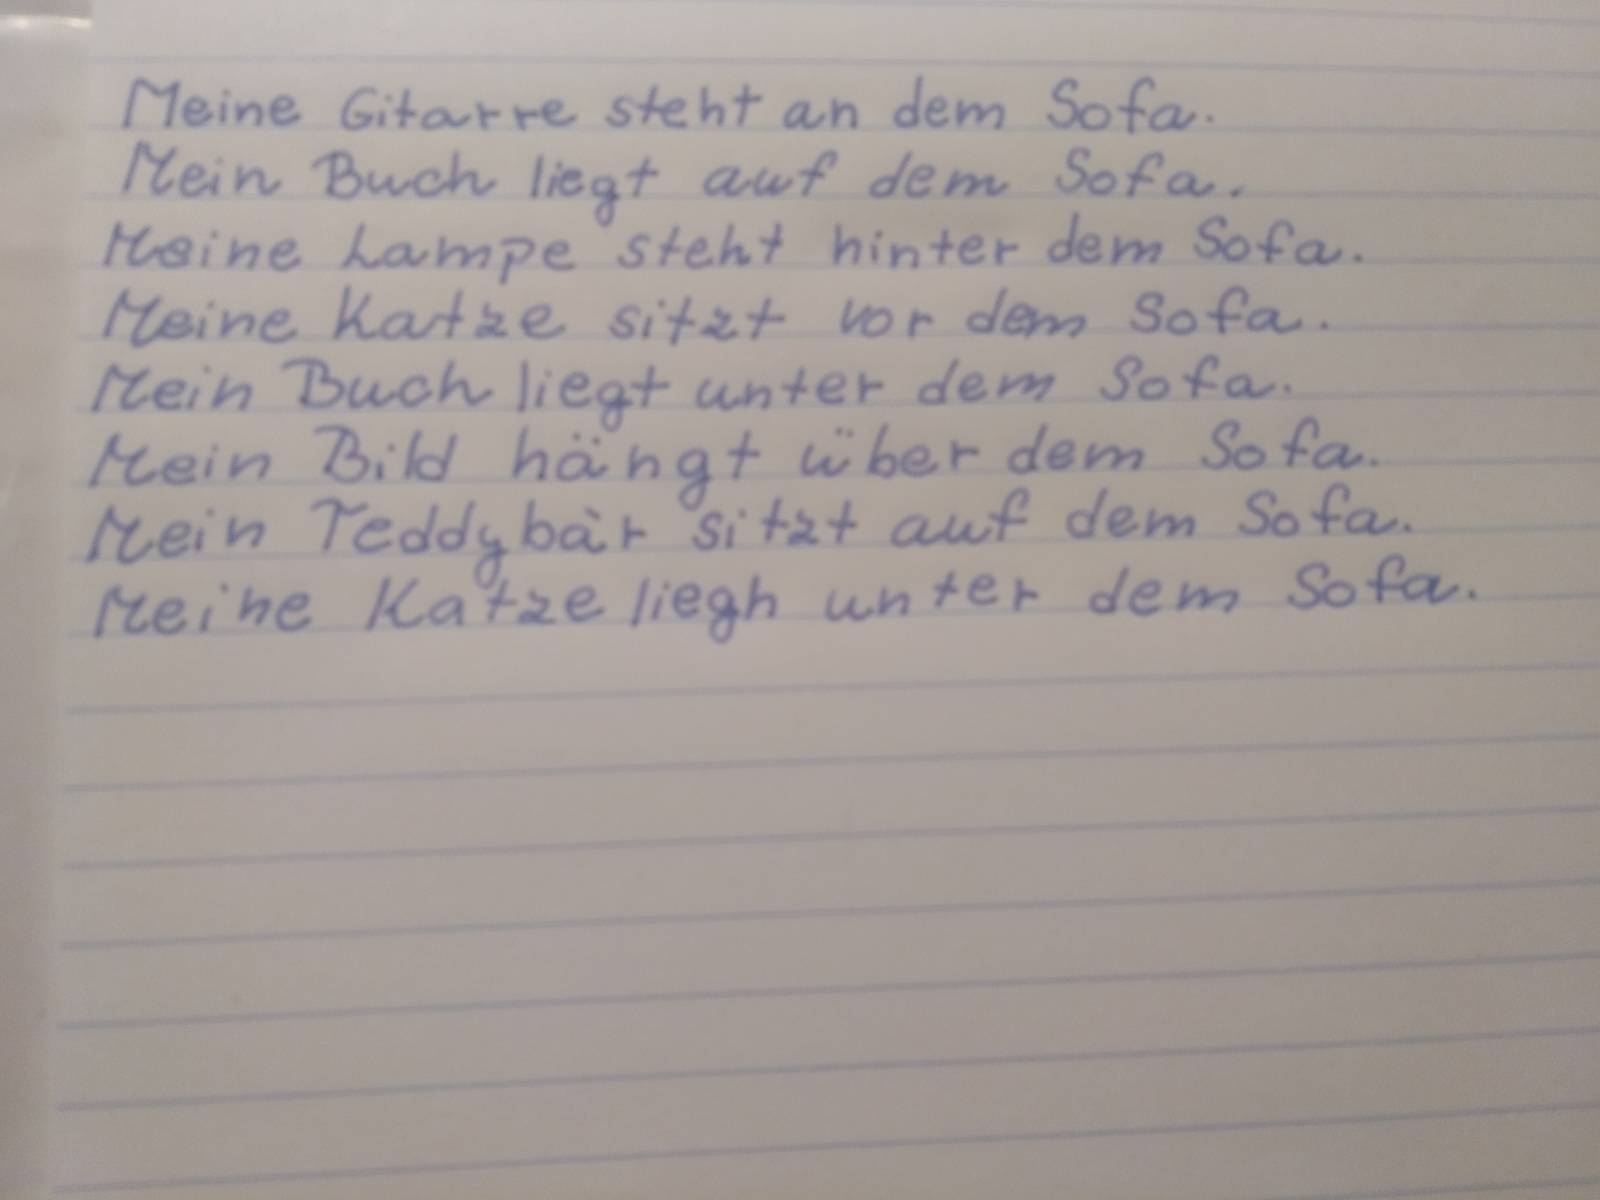 Meine Gitarre steht an dem Sofa.
Mein Buch liegt auf dem Sofa.
Meine Lampe steht hinter dem Sofa.
Meine Katze sitzt vor dem Sofa.
Mein Buch liegt unter dem Sofa.
Mein Bild hängt über dem Sofa.
Mein Teddybär sitzt auf dem Sofa.
Meine Katze liegh unter dem Sofa.